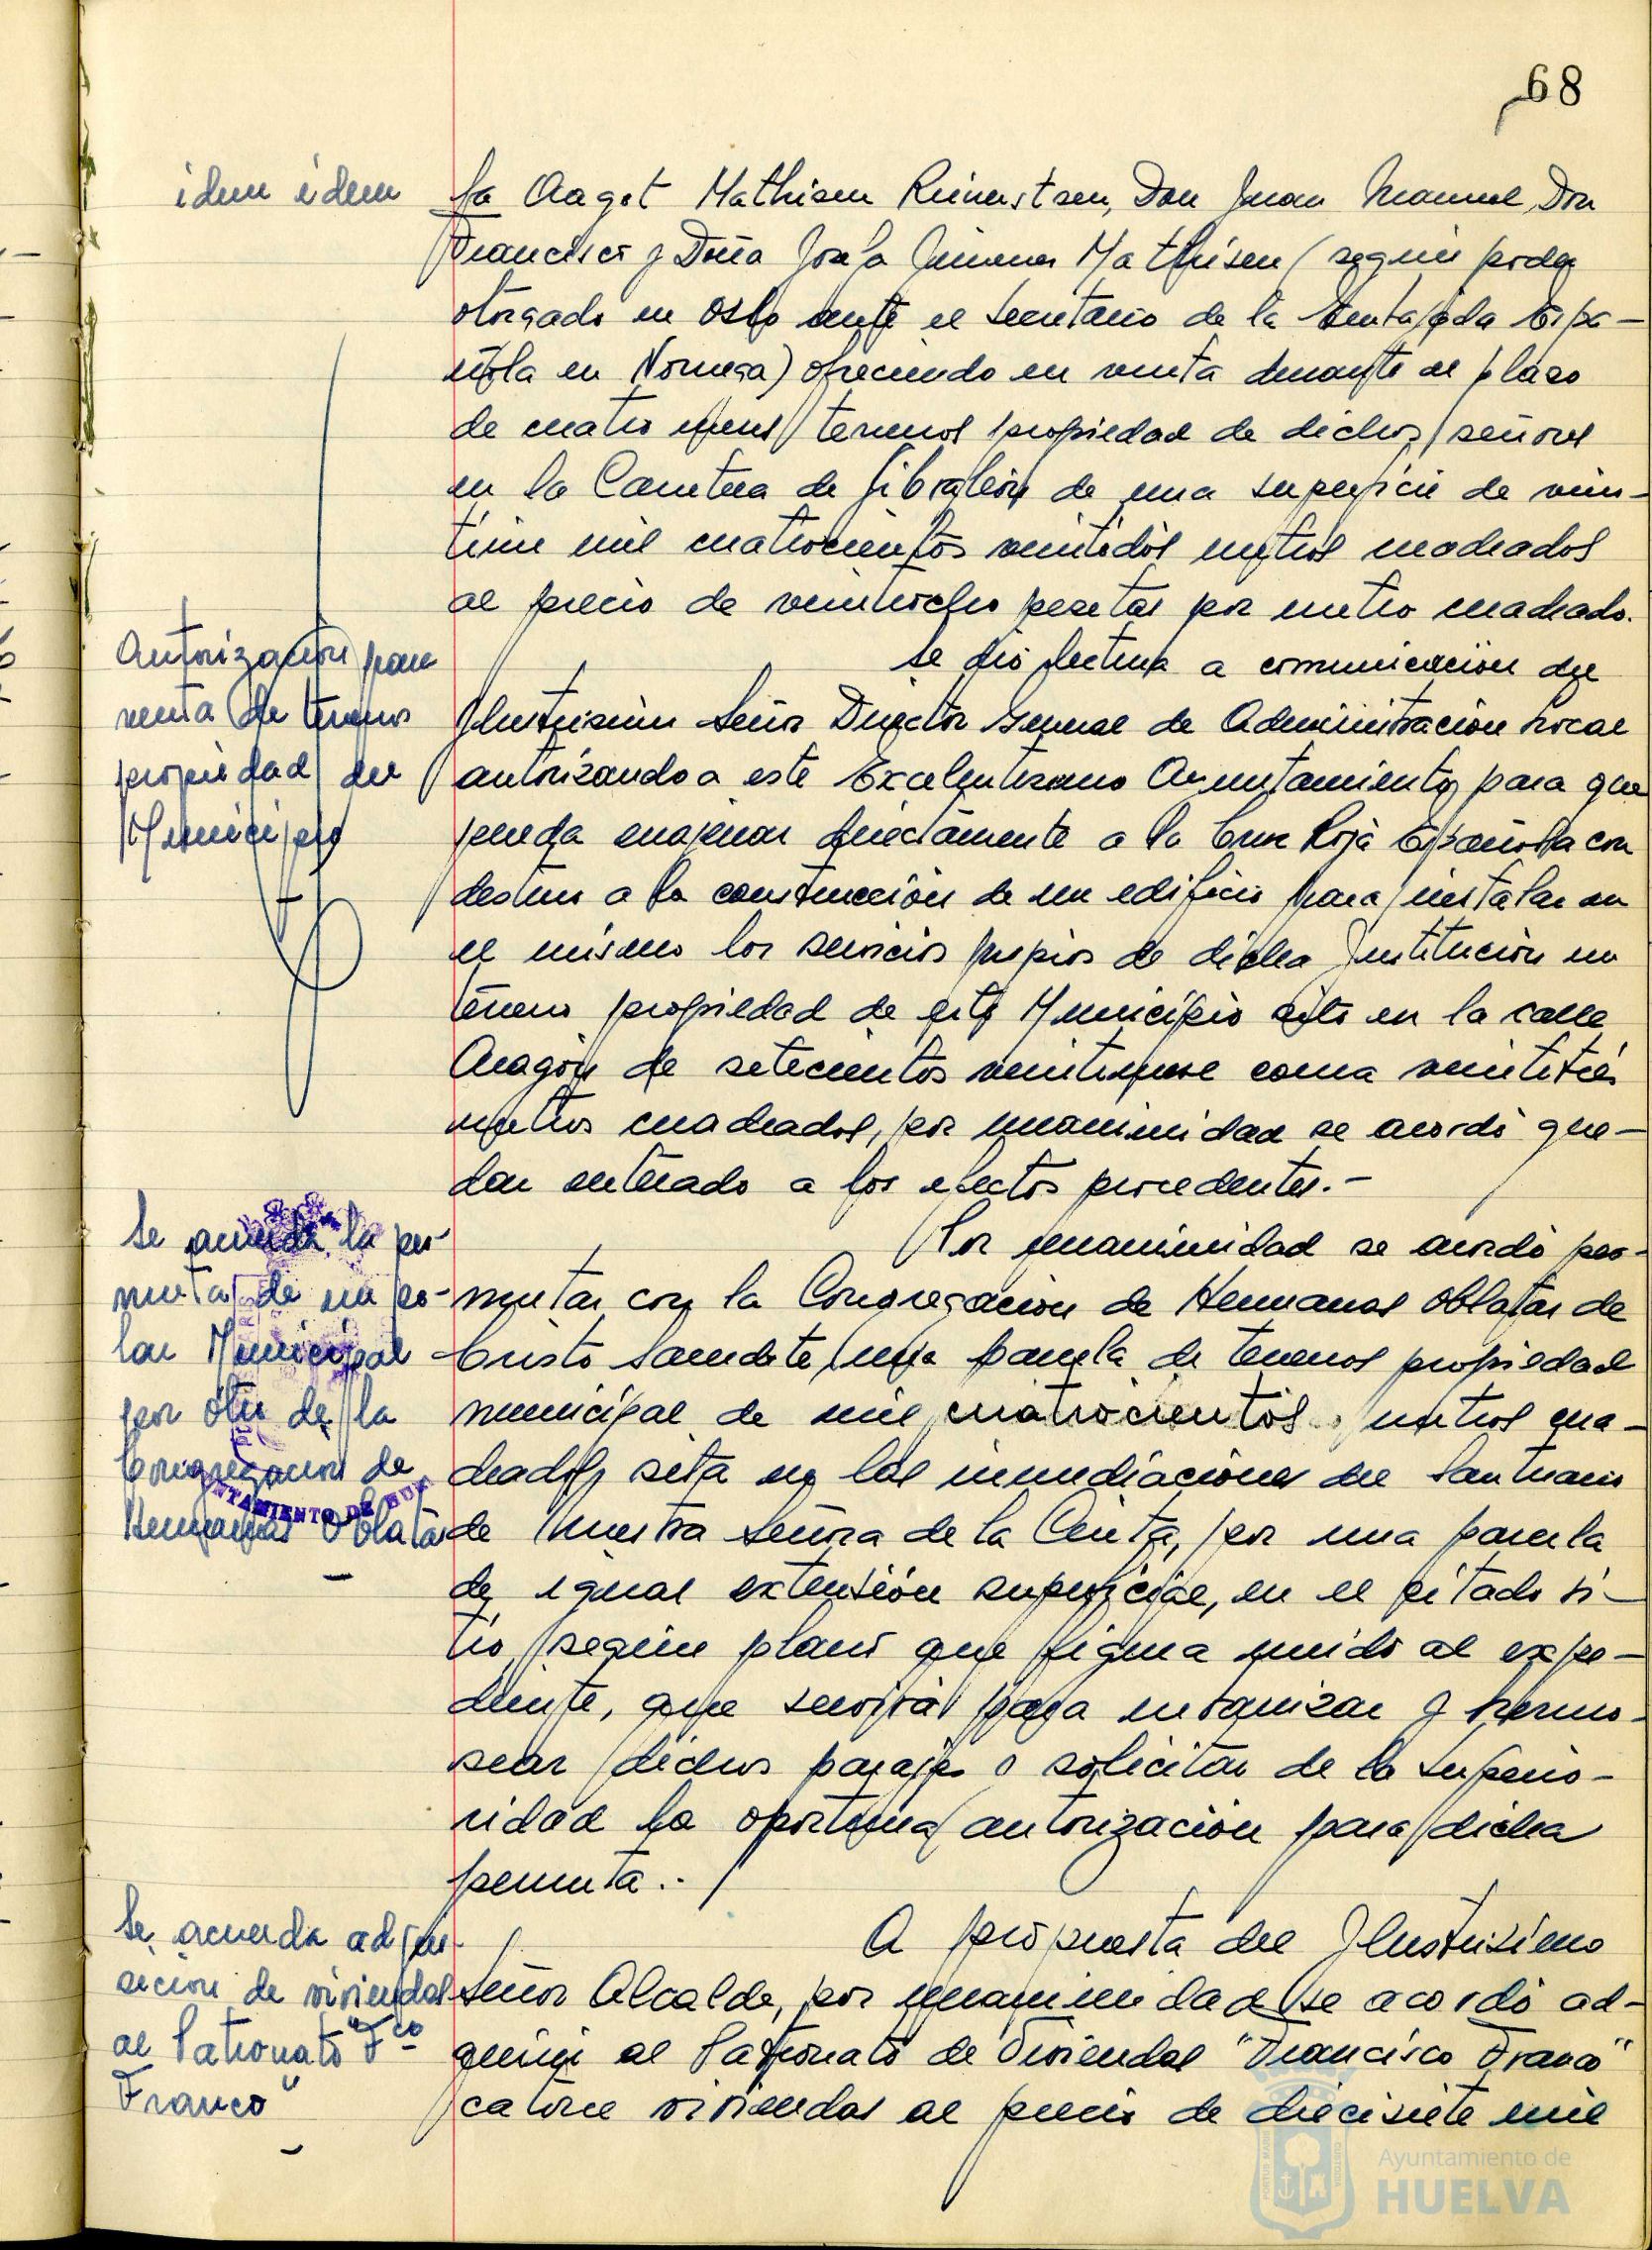 68
idem idem
ña Aagot Mathisen Reinertsen, Don Juan Manuel, Don
Francisco y Doña Josefa Jimenez Mathisen (según poder
otorgado en Oslo ante el Secretario de la Embajada Espa-
ñola en Noruega) ofreciendo en venta durante el plazo
de cuatro meses terrenos propiedad de dichos señores
en la Carretera de Gibraleón de una superficie de vein-
tiun mil cuatrocientos veintidós metros cuadrados
al precio de veintiocho pesetas por metro cuadrado.
Autorización para
venta de terrenos
propiedad del
Municipio
Se dió lectura a comunicación del
Ilustrisimo Señor Director General de Administración Local
autorizando a este Excelentisimo Ayuntamiento para que
pueda enajenar directamente a la Cruz Roja Española con
destino a la construcción de un edificio para instalar en
el mismo los servicios propios de dicha Institución un
terreno propiedad de este Municipio sito en la calle
Aragón de setecientos veintinueve coma veintitrés
metros cuadrados, por unanimidad se acordó que-
dar enterado a los efectos procedentes.-
Se acuerda la per-
muta de un so-
lar Municipal
por otro de la
Congregación de
Hermanas Oblatas
NTAMIENTO DE HUE
Por unanimidad se acordó per-
mutar con la Congregación de Hermanas Oblatas de
Cristo Sacerdote, una parcela de terrenos propiedad
municipal de mil cuatrocientos metros cua-
drados sita en las inmediaciones del Santuario
de Nuestra Señora de la Cinta, por una parcela
de igual extensión superficial, en el citado si-
tio, según plano que figura unido al expe-
diente, que servirá para urbanizar y hermo-
sear dichos parajes y solicitar de la Superio-
ridad la oportuna autorización para dicha
permuta.-
Se acuerda adqui-
sicion de viviendas
al Patronato "Fco
Franco"
A propuesta del Ilustrisimo
Señor Alcalde, por unanimidad se acordó ad-
quirir al Patronato de Viviendas "Francisco Franco"
catorce viviendas al precio de diecisiete mil
Ayuntamiento de
HUELVA